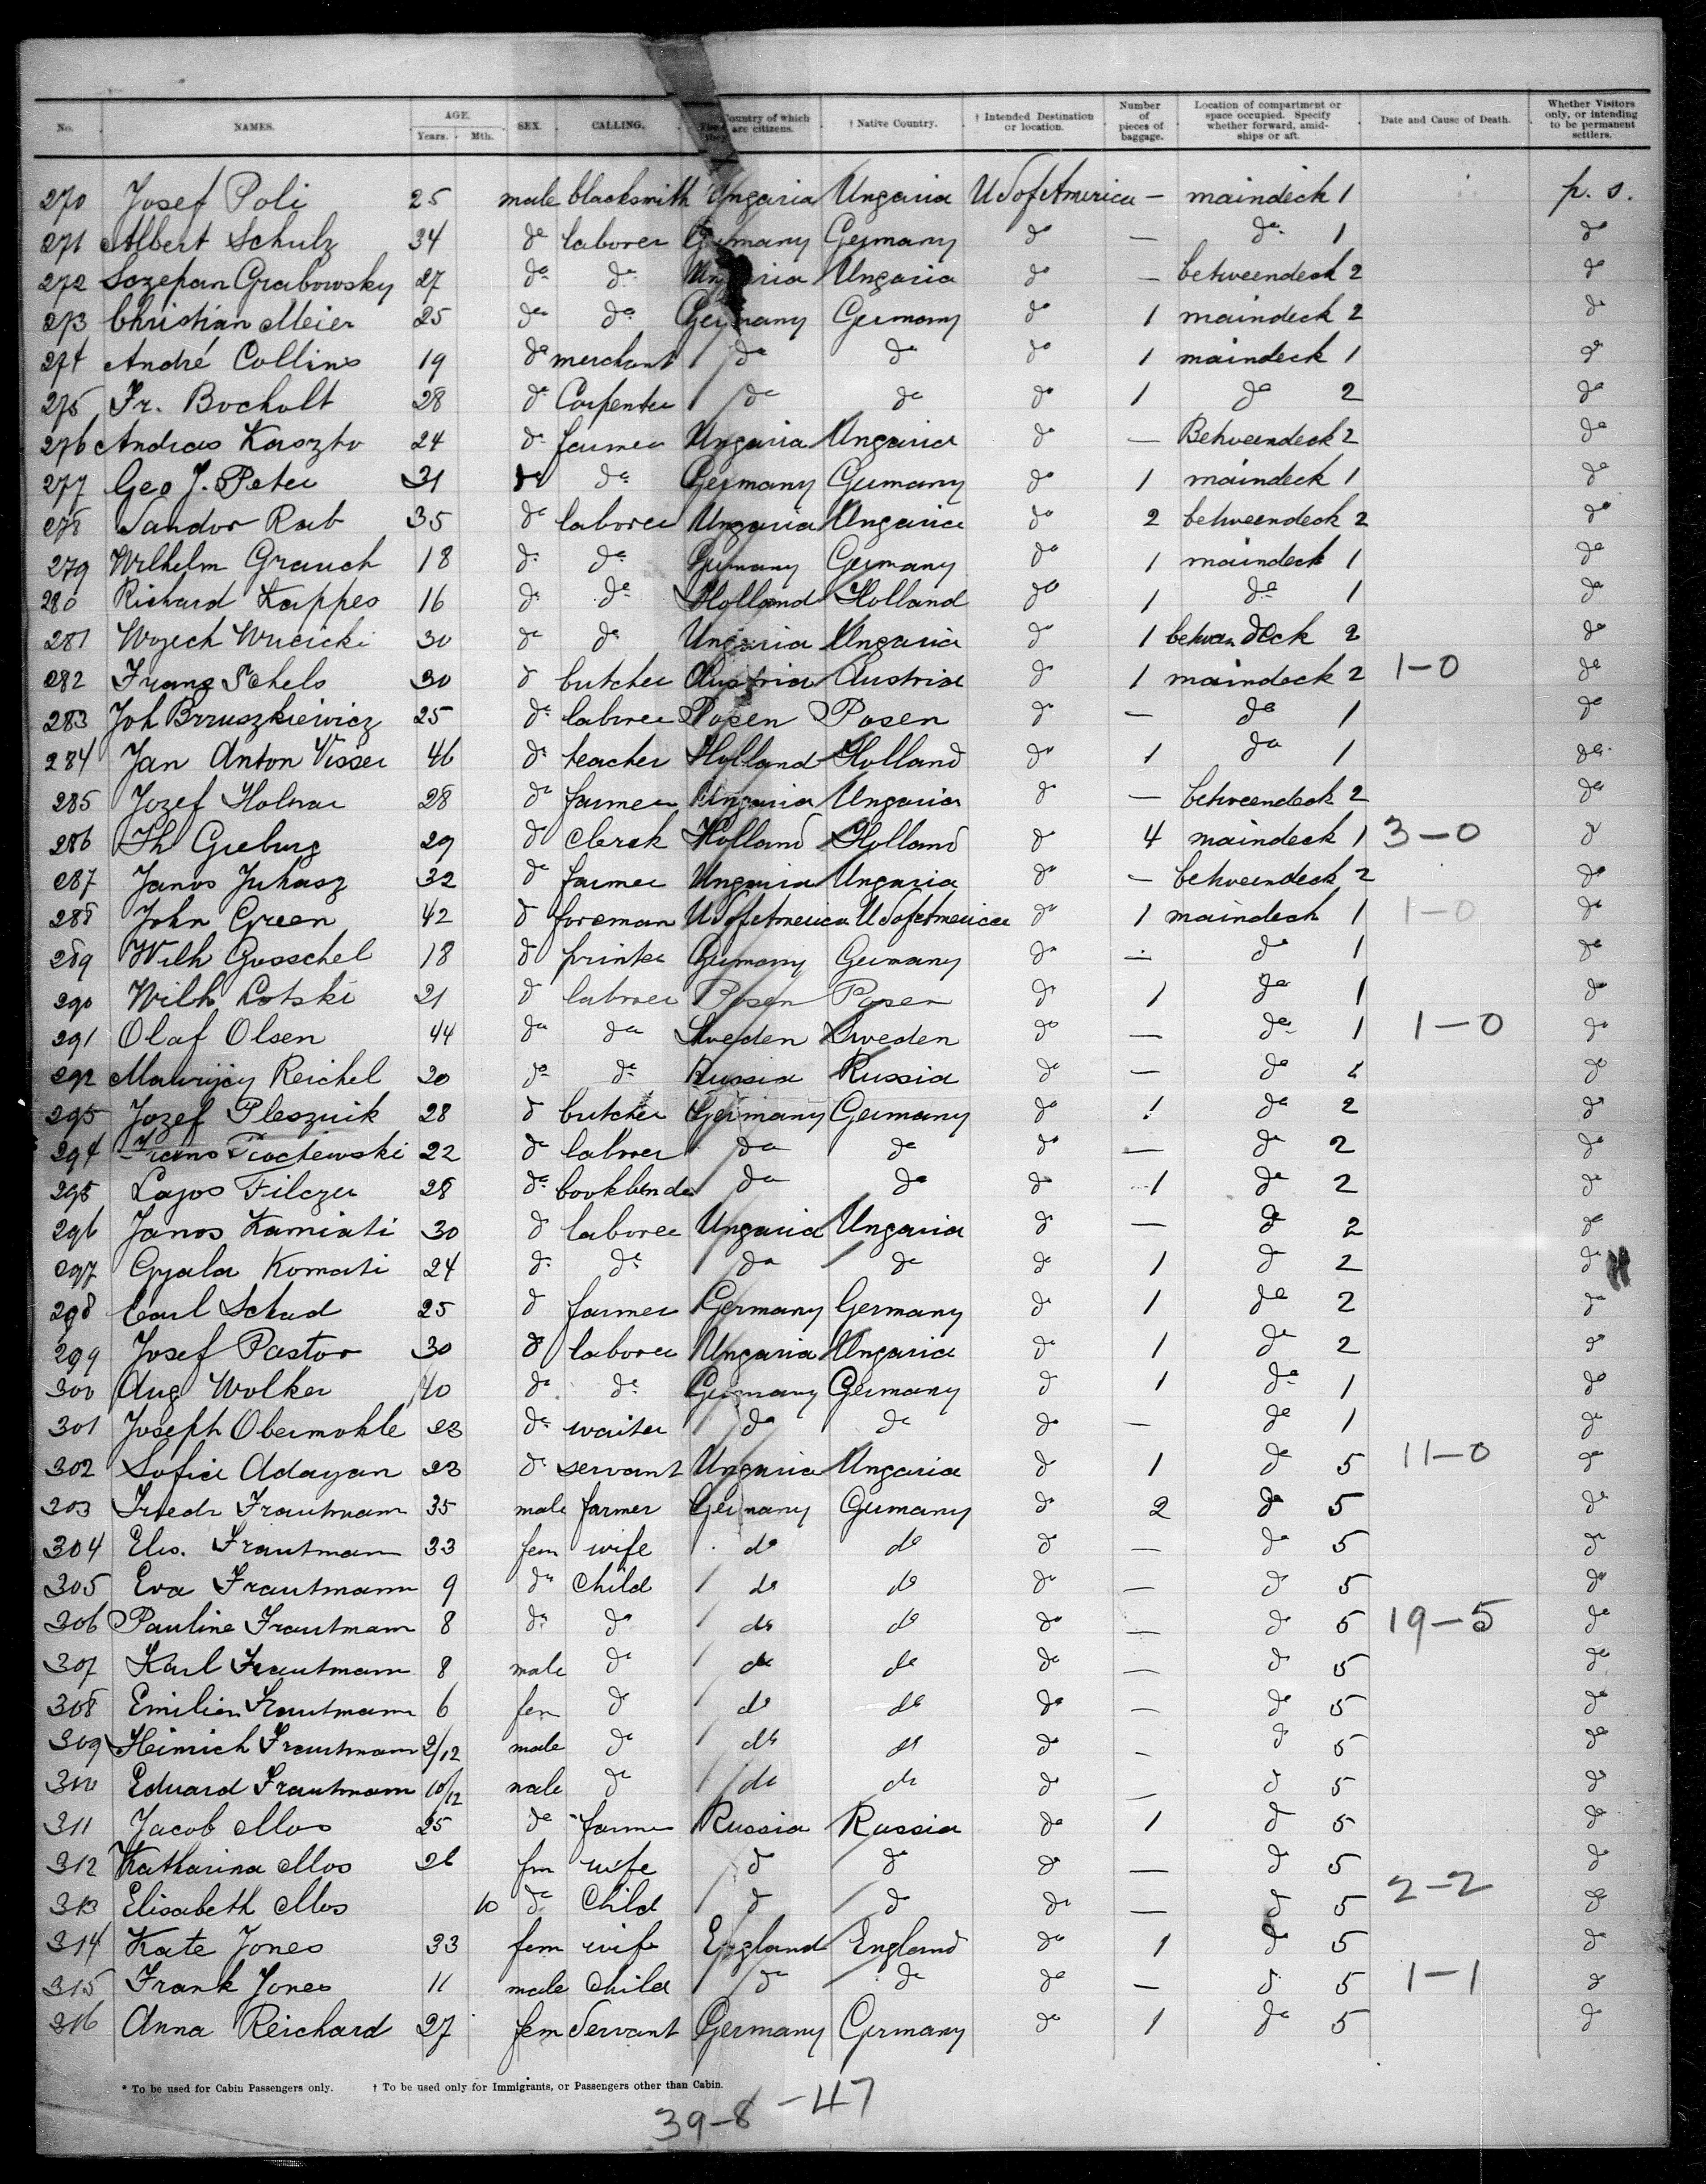 No. NAMES. AGE. Years. Mth. SEX. CALLING. Country of which they are citizens. † Native Country. † Intended Destination or location. Number of pieces of baggage. Location of compartment or space occupied. Specify whether forward, amidships or aft. Date and Cause of Death. Whether Visitors only, or intending to be permanent settlers.
270 Josef Poli 25 male blacksmith Ungaria Ungaria USofAmerica — maindeck 1 p. s.
271 Albert Schulz 34 do laborer Germany Germany do — do 1 do
272 Sczepan Grabowsky 27 do do Ungaria Ungaria do — betweendeck 2 do
273 Christian Meier 25 do do Germany Germany do 1 maindeck 2 do
274 André Collins 19 do merchant do do do 1 maindeck 1 do
275 Fr. Bocholt 28 do Carpenter do do do 1 do 2 do
276 Andras Kaszto 24 do farmer Ungaria Ungaria do — Betweendeck 2 do
277 Geo J. Peter 31 do do Germany Germany do 1 maindeck 1 do
278 Sandor Rab 35 do laborer Ungaria Ungaria do 2 betweendeck 2 do
279 Wilhelm Grauch 18 do do Germany Germany do 1 maindeck 1 do
280 Richard Kappes 16 do do Holland Holland do 1 do 1 do
281 Wojech 30 do do Ungaria Ungaria do 1 betwen deck 2 do
282 Franz Schels 30 do butcher Austria Austria do 1 maindeck 2 1-0 do
283 Joh Brruszkiewicz 25 do laborer Posen Posen do — do 1 do
284 Jan Anton Visser 46 do teacher Holland Holland do 1 do 1 do
285 Jozef Holnar 28 do farmer Ungaria Ungaria do — betweendeck 2 do
286 Th Gieburg 29 do Clerck Holland Holland do 4 maindeck 1 3-0 do
287 Janos Juhasz 32 do farmer Ungaria Ungaria do — betweendeck 2 do
288 John Green 42 do foreman USofAmerica USofAmerica do 1 maindeck 1 1-0 do
289 Wilh Gusschel 18 do printer Germany Germany do — do 1 do
290 Wilh Lotski 21 do laborer Posen Posen do 1 do 1 do
291 Olaf Olsen 44 do do Sweden Sweden do — do 1 1-0 do
292 Maurijcy Reichel 20 do do Russia Russia do — do 1 do
295 Jozef Plesznik 28 do butcher Germany Germany do 1 do 2 do
294 Frans Piochewski 22 do laborer do do do — do 2 do
295 Lajos Filczer 28 do bookbinder do do do 1 do 2 do
296 Janos Kamiati 30 do laborer Ungaria Ungaria do — do 2 do
297 Gyala Komati 24 do do do do do 1 do 2 do
298 Carl Schad 25 do farmer Germany Germany do 1 do 2 do
299 Josef Pastor 30 do laborer Ungaria Ungaria do 1 do 2 do
300 Aug Wolker 40 do do Germany Germany do 1 do 1 do
301 Joseph Obermohle 23 do waiter do do do — do 1 do
302 Sofia Adayan 23 do servant Ungaria Ungaria do 1 do 5 11-0 do
303 Friedr Frautmann 35 male farmer Germany Germany do 2 do 5 do
304 Elis. Frautmann 33 fem wife do do do — do 5 do
305 Eva Frautmann 9 do Child do do do — do 5 do
306 Pauline Frautmann 8 do do do do do — do 5 19-5 do
307 Karl Frautmann 8 male do do do do — do 5 do
308 Emilien Frautmann 6 fem do do do do — do 5 do
309 Heinrich Frautmann 2/12 male do do do do — do 5 do
310 Eduard Frautmann 10/12 male do do do do — do 5 do
311 Jacob Mos 25 do farmer Russia Russia do 1 do 5 do
312 Katharina Mos 26 fem wife do do do — do 5 do
313 Elisabeth Mos 10 do Child do do do — do 5 2-2 do
314 Kate Jones 33 fem wife England England do 1 do 5 do
315 Frank Jones 11 male Child do do do — do 5 1-1 do
316 Anna Reichard 27 fem Servant Germany Germany do 1 do 5 do
* To be used for Cabin Passengers only. † To be used only for Immigrants, or Passengers other than Cabin.
39-8 -47